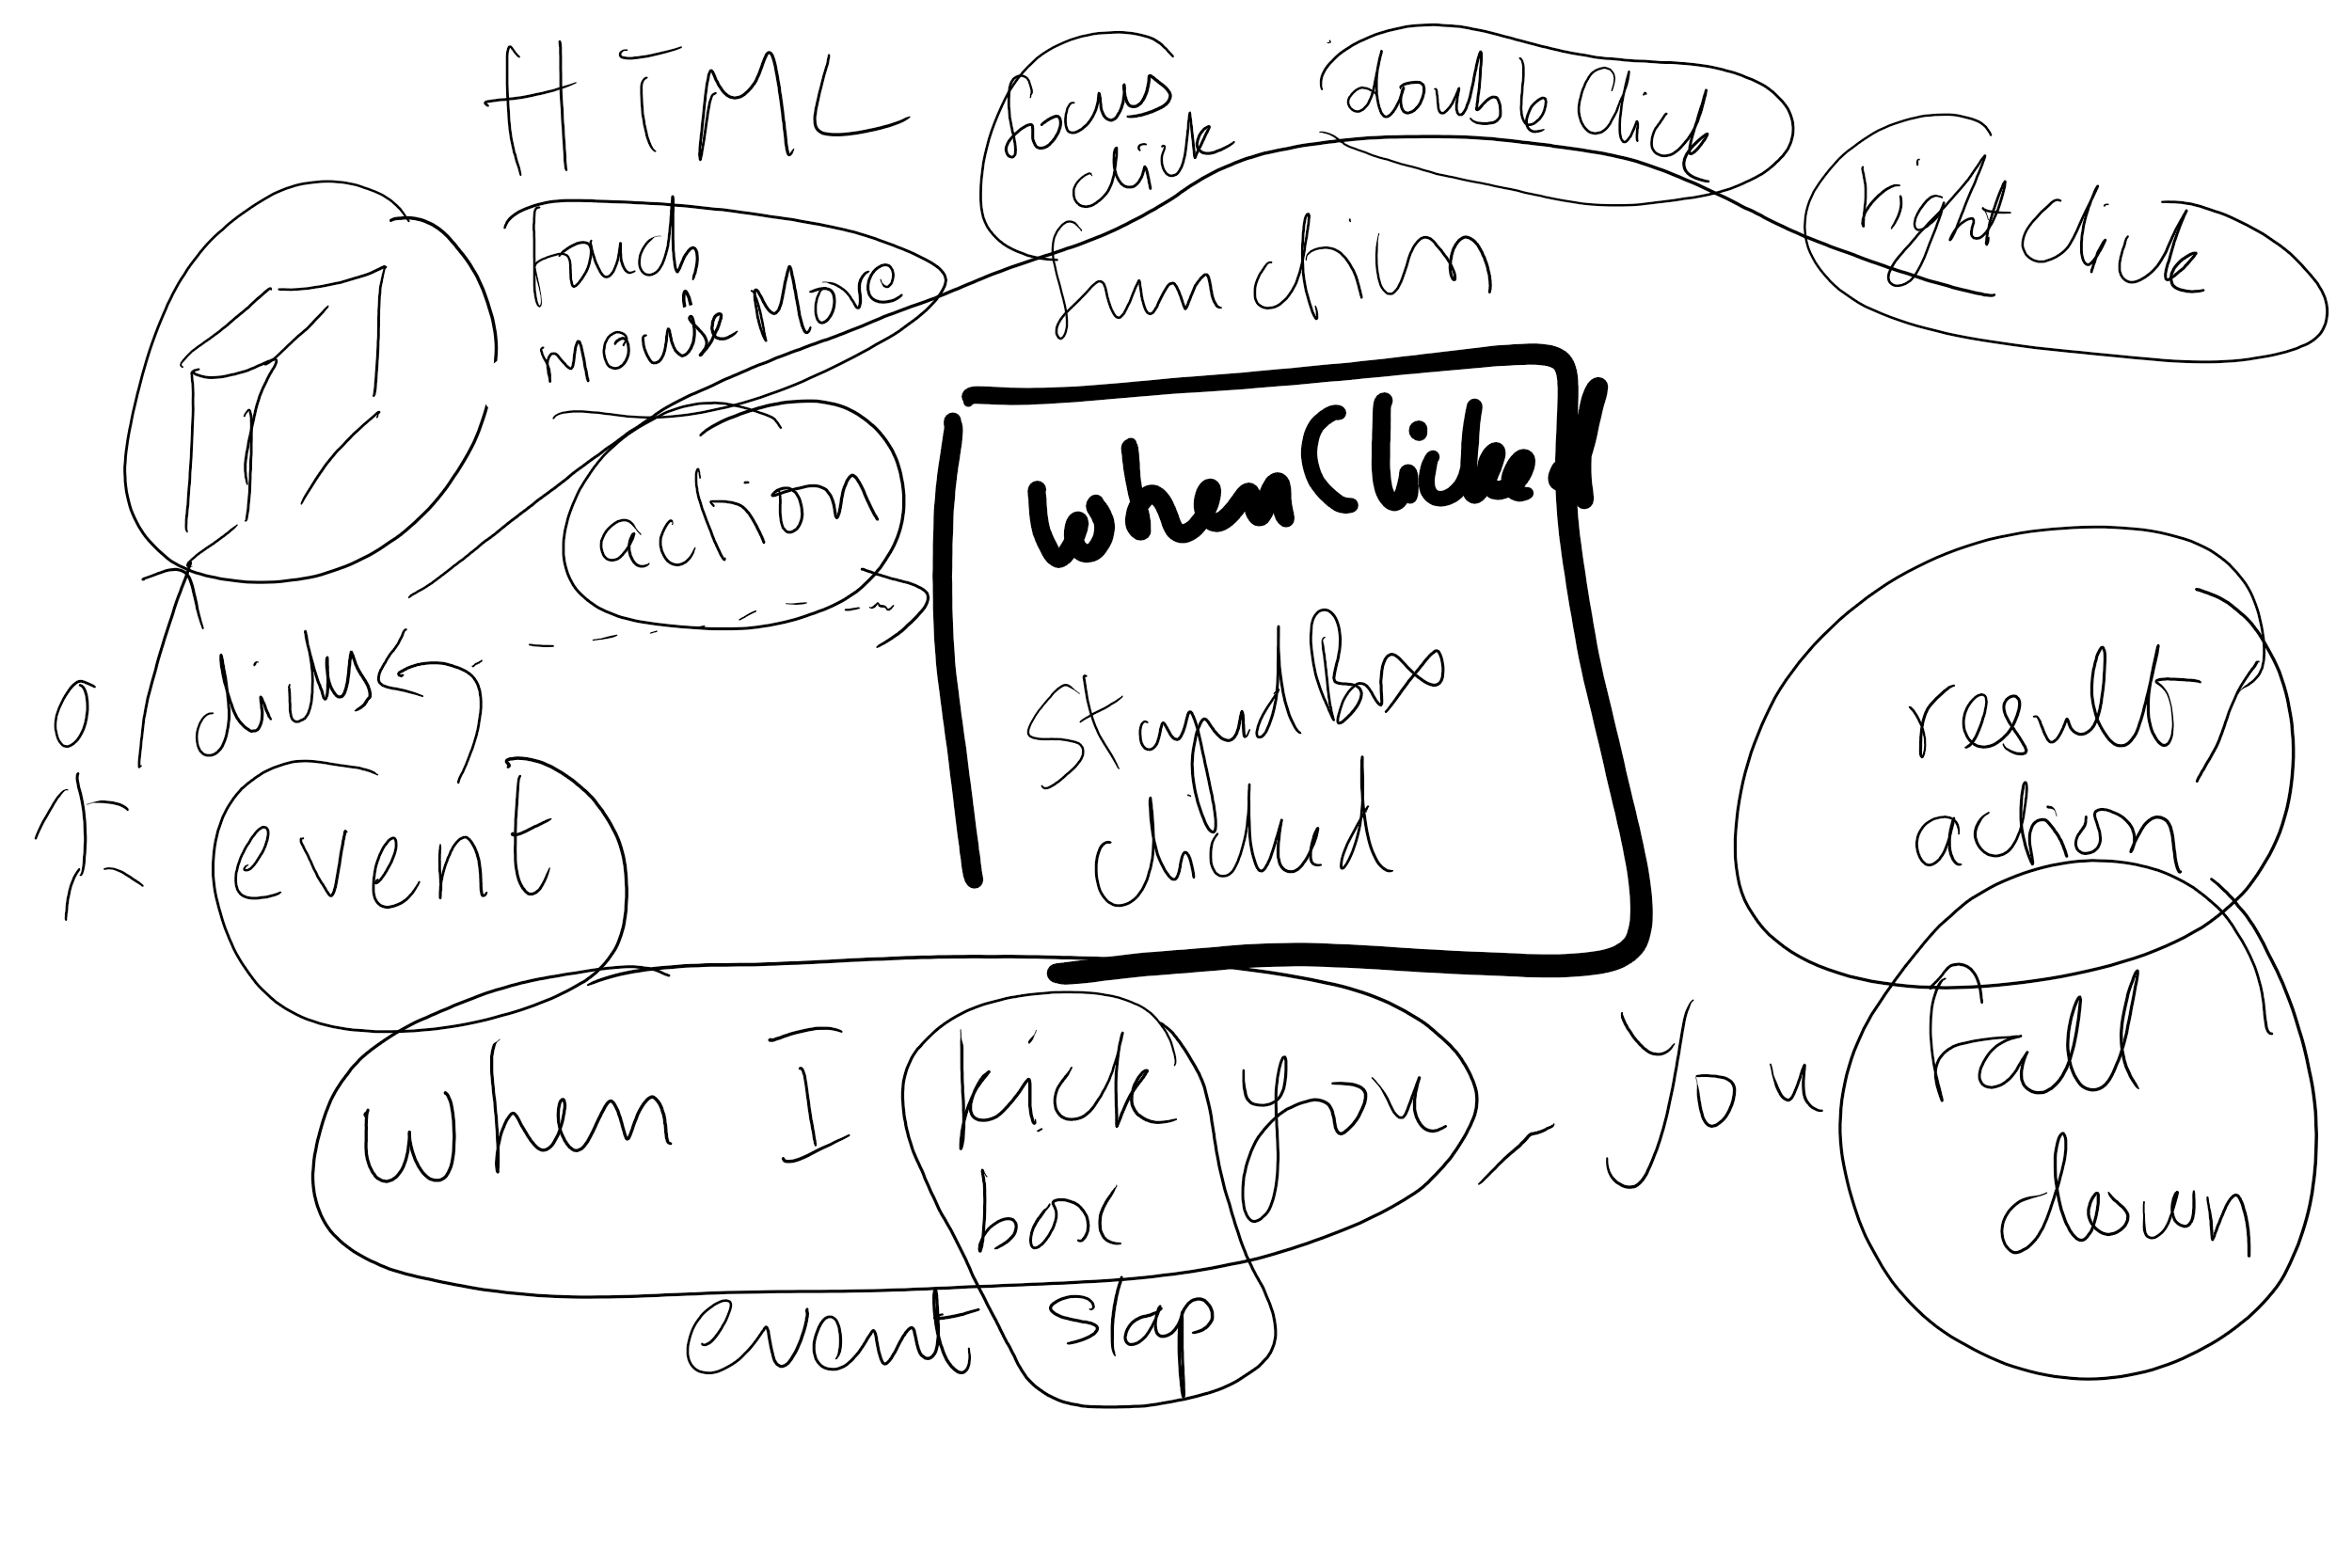 HTML
focus
click
double Click
right click
touch
mouse Move
function
action
when Clicked
Stand Box
clicked
clicks
event
result
action
when I kick you, You Fall
box
down
event slap